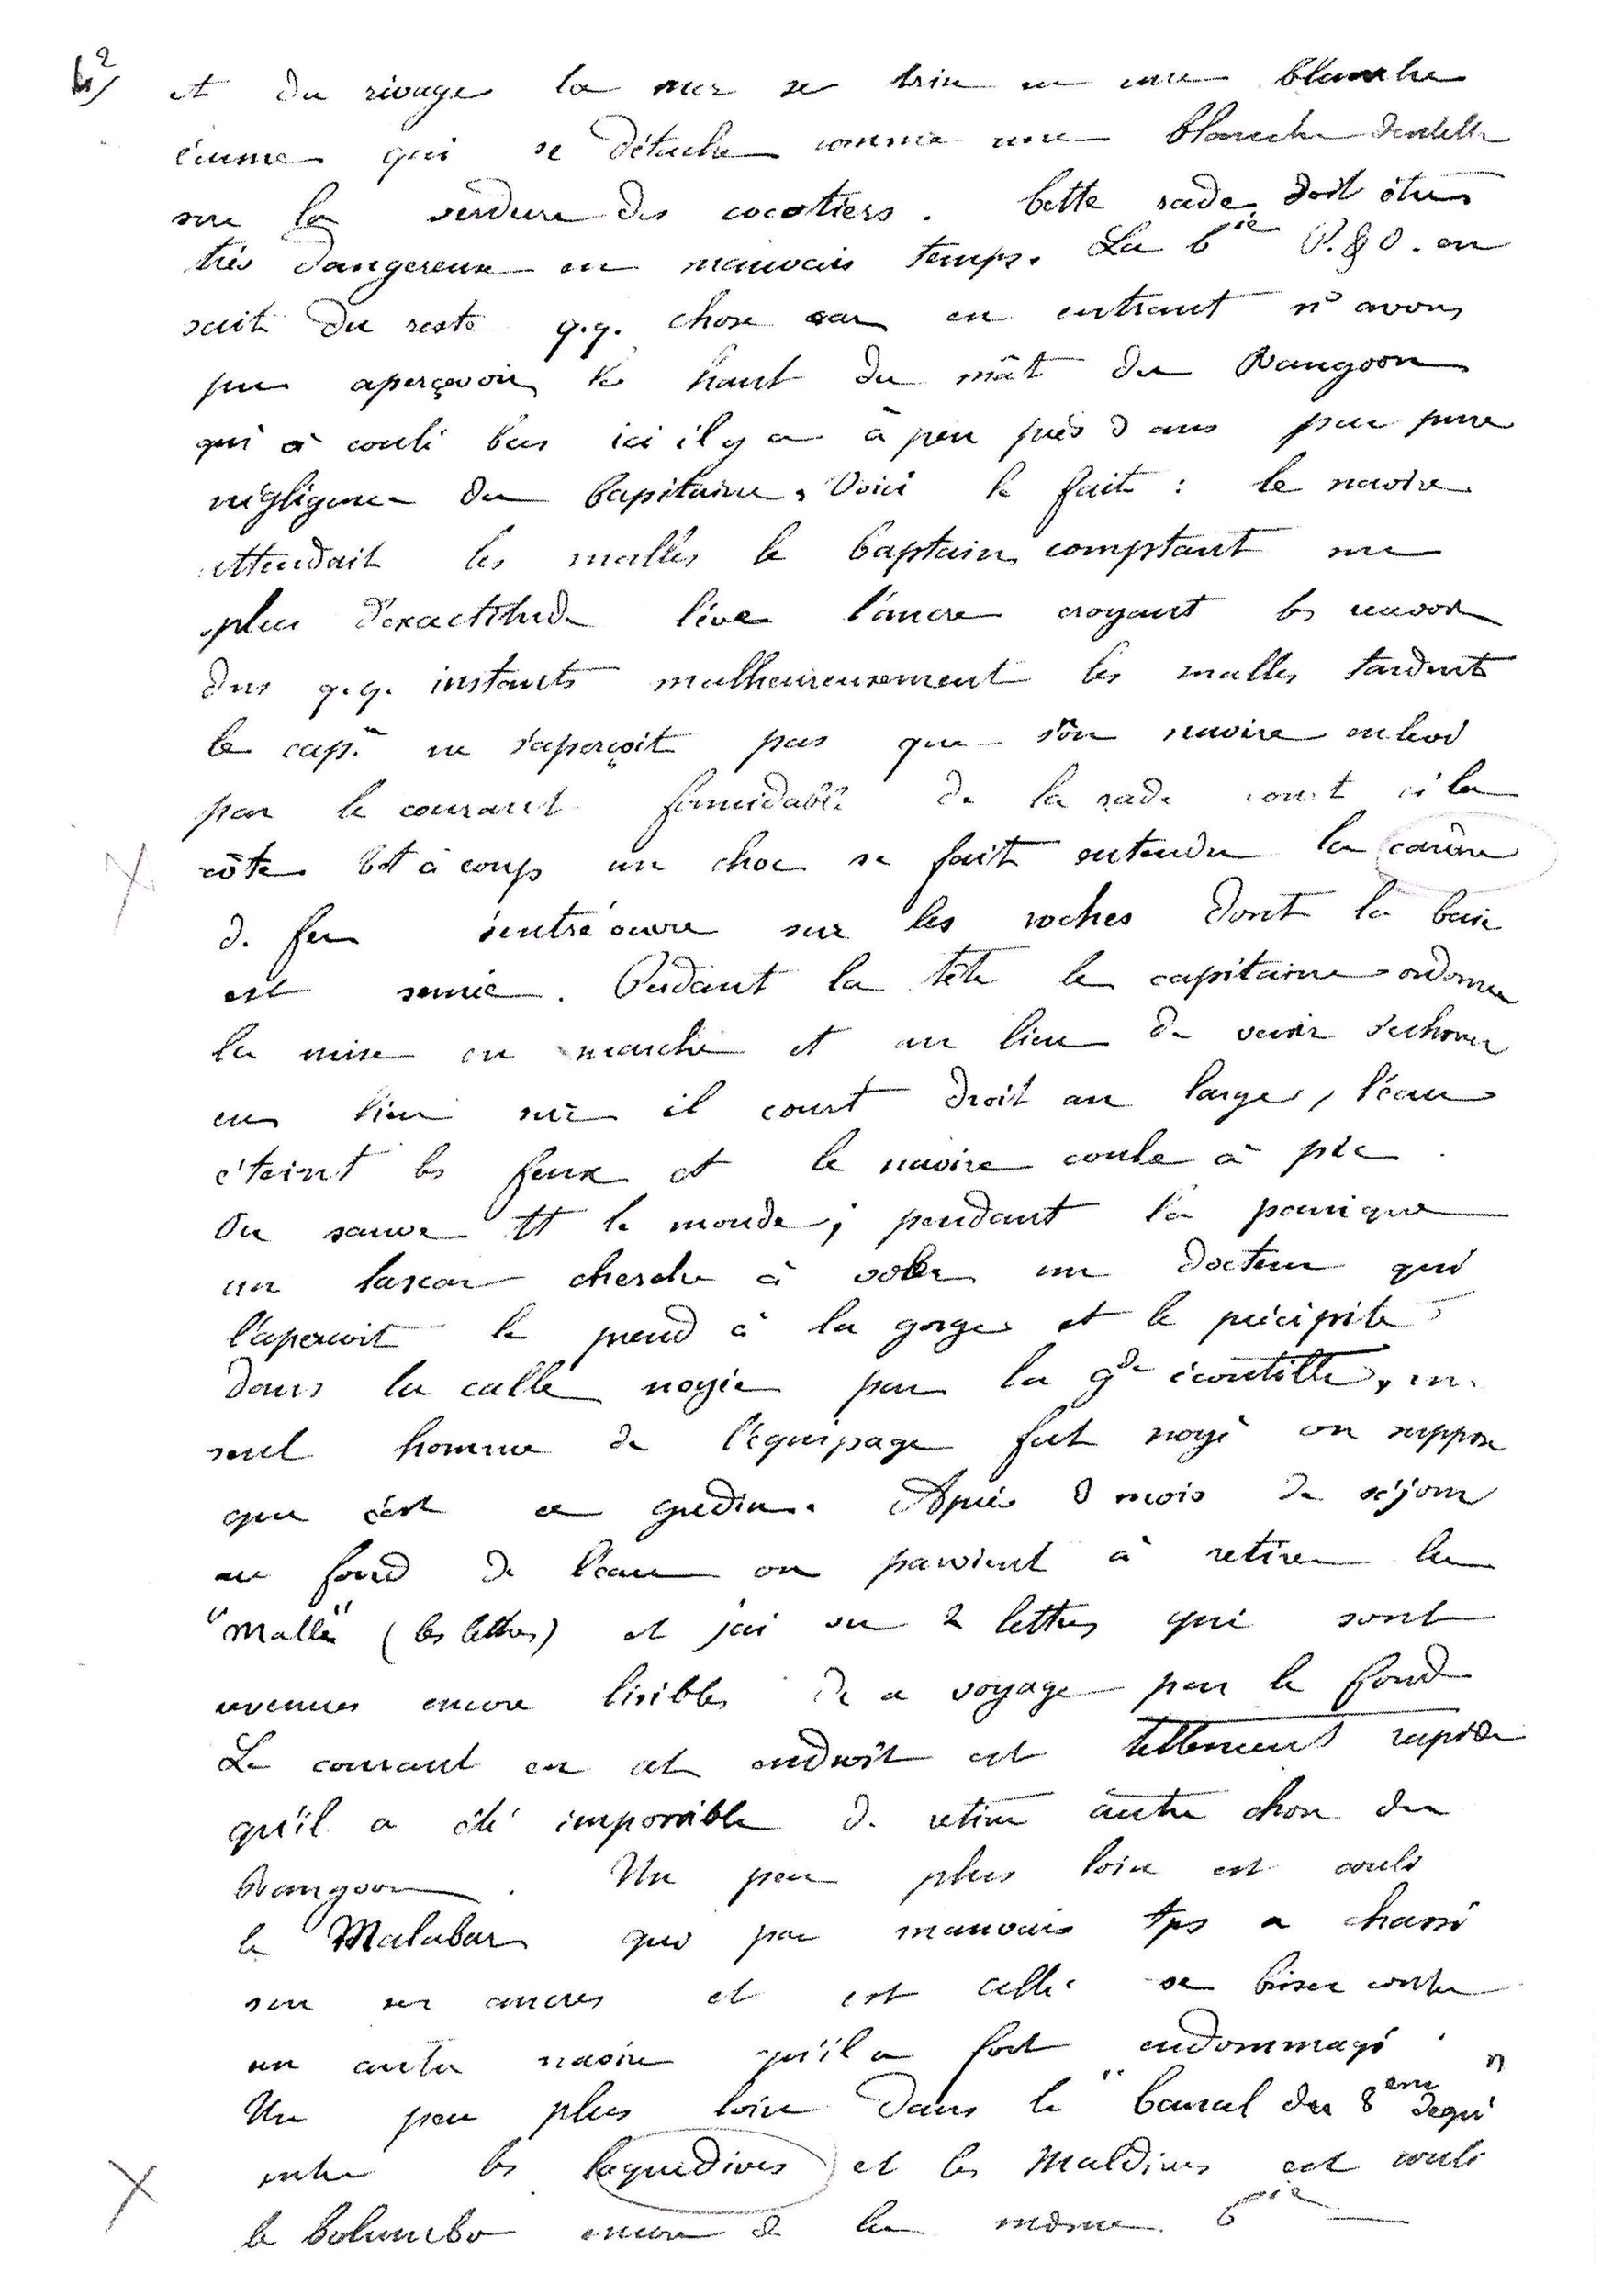 et du rivage la mer se brise en une blanche
écume qui se détache comme une blanche dentelle
sur la verdure des cocotiers. Cette rade doit être
très dangereuse en mauvais temps. La Cie P. & O. en
sait du reste q.q. chose car en entrant ns avons
pu apercevoir le haut du mât du Rangoon
qui a coulé bas ici il y a à peu près 3 ans par pure
négligence du Capitaine. Voici le fait : le navire
attendait les malles le Captain comptant sur
plus d'exactitude lève l'ancre croyant les recevoir
dns q.q. instants malheureusement les malles tardent
le cap.ne ne s'aperçoit pas que son navire enlevé
par le courant formidable de la rade court à la
côte tt à coup un choc se fait entendre la carène
d. fer s'entr'ouvre sur les roches dont la baie
est semée. Perdant la tête le capitaine ordonne
la mise en marche et au lieu de venir s'echouer
en lieu sûr il court droit au large, l'eau
éteint les feux et le navire coule à pic.
On sauve tt le monde ; pendant la panique
un lascar cherche à voler un docteur qui
l'aperçoit le prend à la gorge et le précipite
dans la calle noyée par la gde écoutille, un
seul homme de l'équipage fut noyé on suppose
que c'est ce gredin. Après 8 mois de séjour
au fond de l'eau on parvient à retirer la
"Malle" (les lettres) et j'ai vu 2 lettres qui sont
revenues encore lisibles de ce voyage par le fond
Le courant en cet endroit est tellement rapide
qu'il a été impossible d. retirer autre chose du
Rangoon. Un peu plus loin est coulé
le Malabar qui par mauvais tps a chassé
sur ses ancres et est allé se briser contre
un autre navire qu'il a fort endommagé.
Un peu plus loin dans le "Canal du 8eme degré"
entre les Laquedives et les Maldives est coulé
le Columbo encore de la même Cie